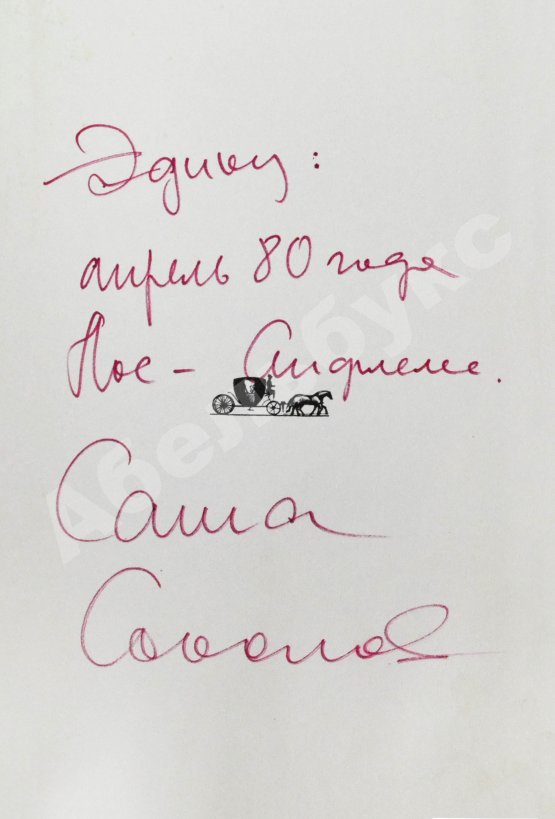 Эдику:
апрель 80 года
Лос-Анджелес.
Саша
Соколов
Абельбукс